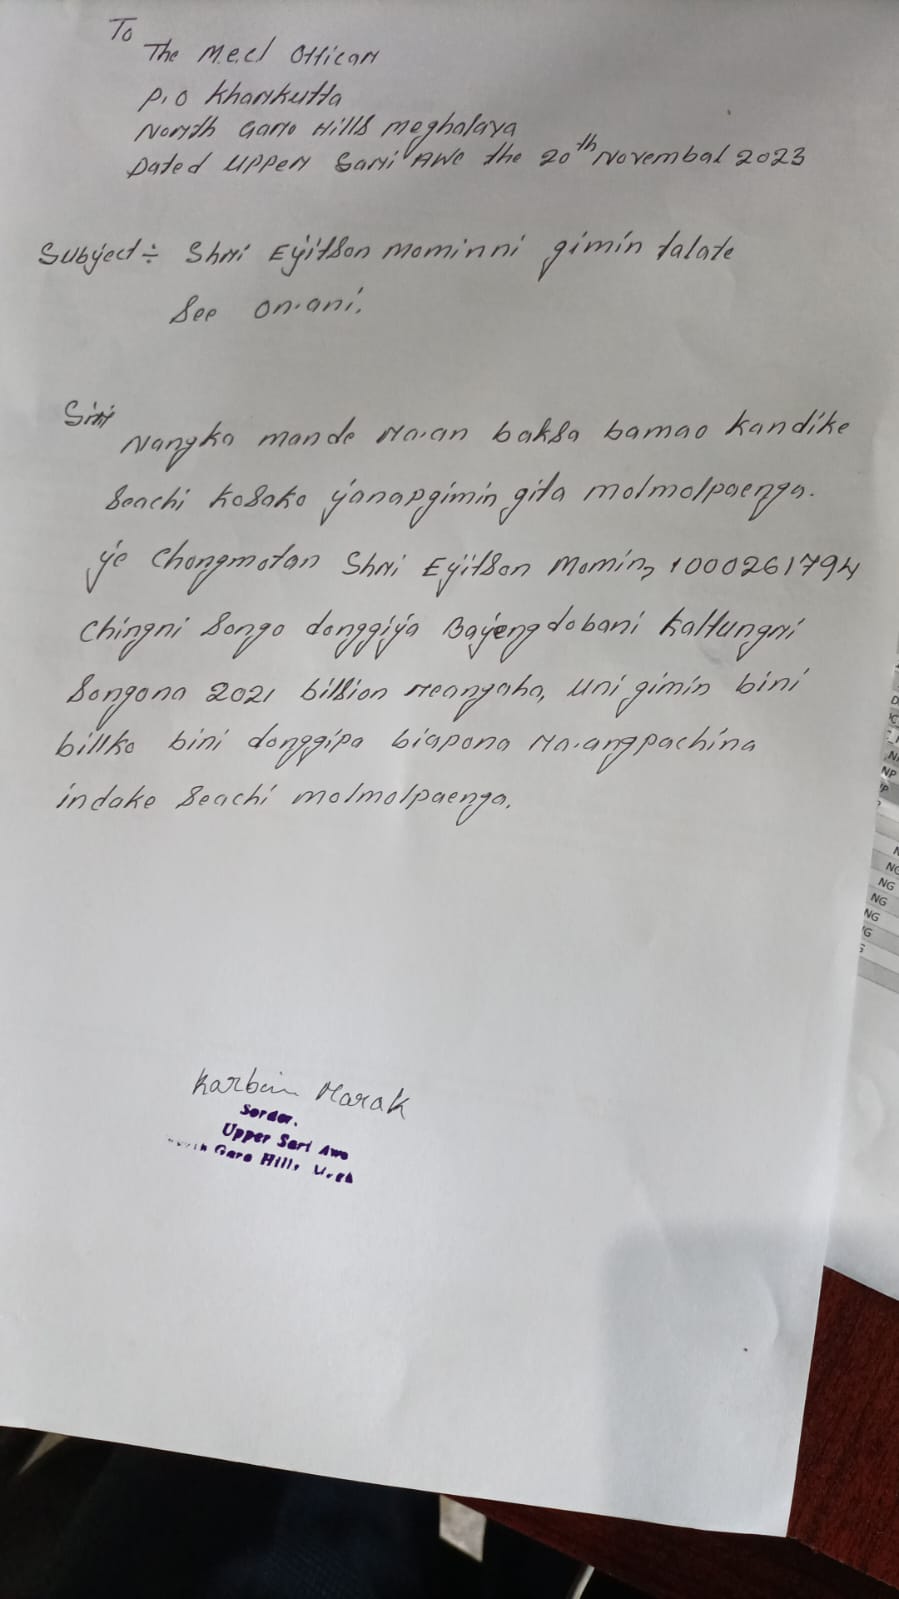 To
The M.e.cl Officer
P.O Kharkutta
North Garo Hills Meghalaya
Dated Upper Sari AWE the 20th Novembal 2023
Subject÷ Shri Eyitson Mominni gimin talate
See on·ani.
Sir
Nangko mande ra·an baksa bamao kandike
Seachi kosako yanapgimin gita molmolpaenga.
ye Chongmotan Shri Eyitson Momin, 1000261794
Chingni Songo donggiya Bayeng dobani
Songona 2021 bilsion reangaha, Uni gimin bini
billko bini donggipa biapona ra·angpachina
indake Seachi molmolpaenga.
Karbin Marak
Sordar.
Upper Sari Awe
Garo Hills
NP
NG
NG
NG
NG